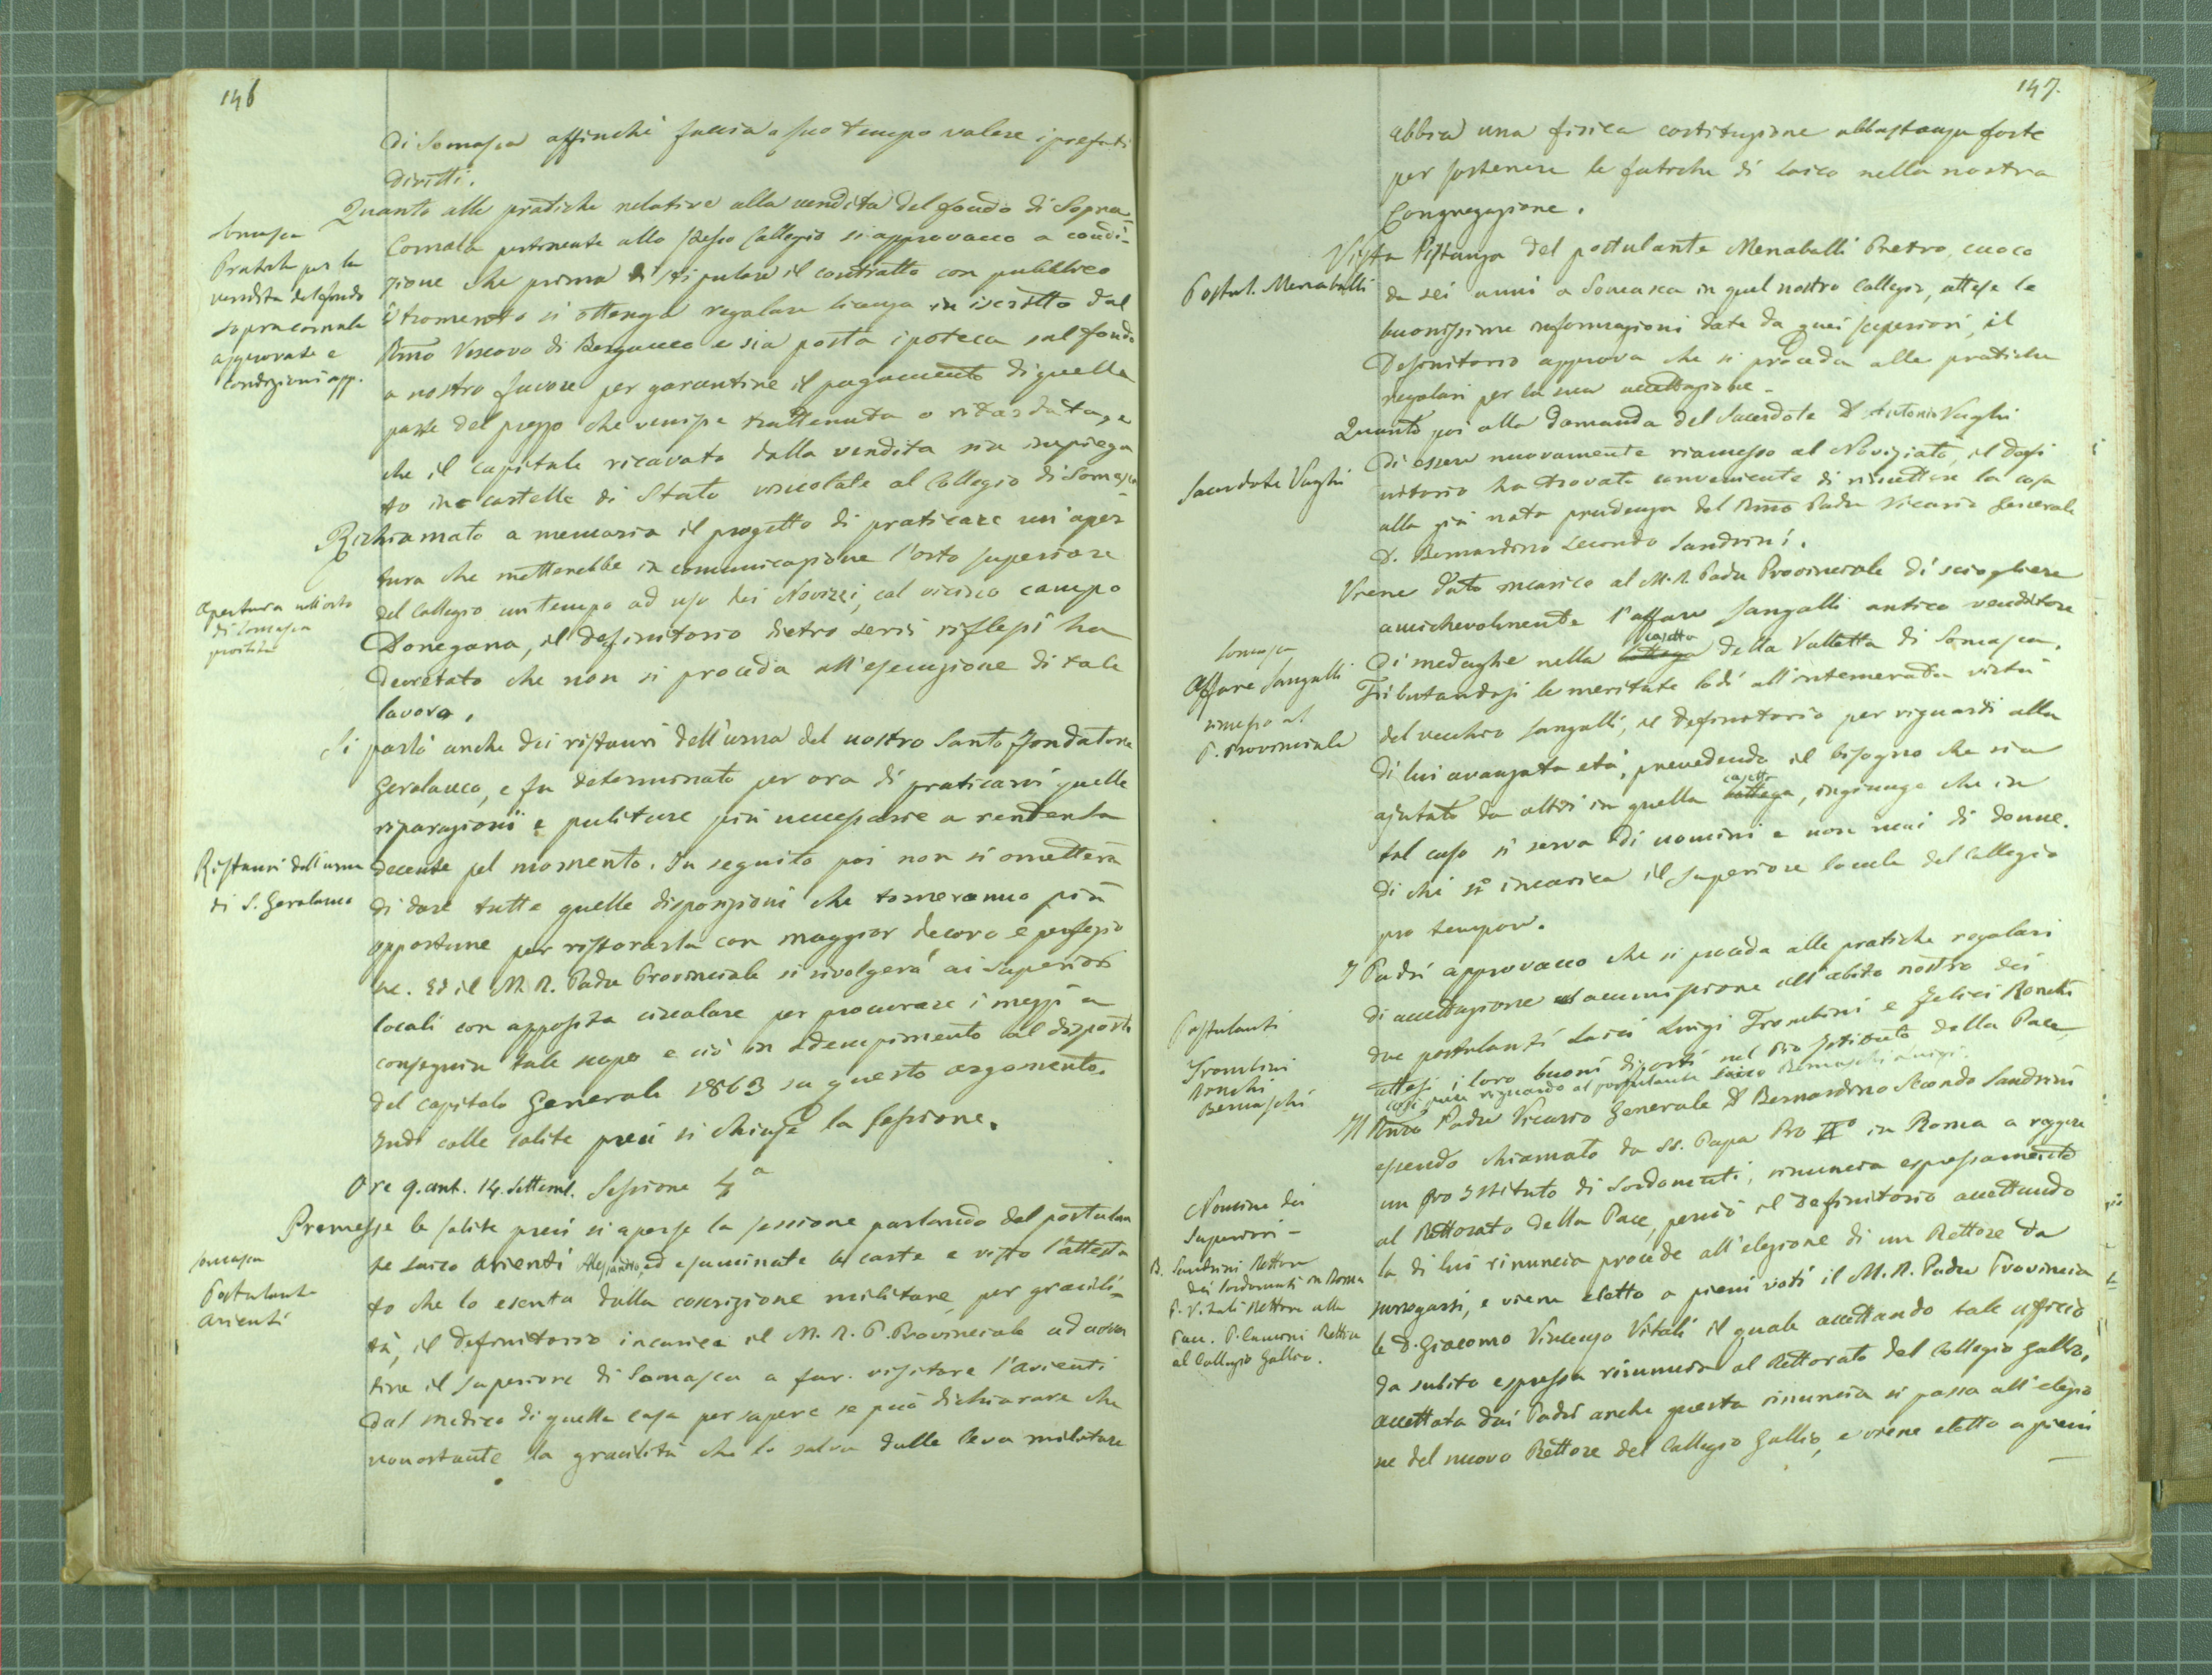 146
di Somasca affinchè faccia a suo tempo valere i prefati
diritti.
Somasca
Pratiche per la
vendita del fondo
sopracornala
approvate e
condizioni app.
Quanto alle pratiche relative alla vendita del fondo di Sopra-
Cornala pertinente allo stesso Collegio si approvano a condi-
zione che prima di stipulare il contratto con pubblico
istromento si ottenga regolare licenza in iscritto dal
Rmo Vescovo di Bergamo e sia posta ipoteca sul fondo
a nostro favore per garantire il pagamento di quella
parte del prezzo che venisse trattenuta o ritardata, e
che il capitale ricavato dalla vendita sia impiega
to in cartelle di Stato vincolate al Collegio di Somasca
Apertura nell'orto
di Somasca
proibita
Richiamato a memoria il progetto di praticare un'aper
tura che metterebbe in comunicazione l'orto superiore
del Collegio un tempo ad uso dei Novizzi, col vicino campo
Donegana, il Definitorio dietro serii riflessi ha
decretato che non si proceda all'esecuzione di tale
lavoro.
Ristauri dell'urna
di S. Gerolamo
Si parlò anche dei ristauri dell'urna del nostro Santo Fondatore
Gerolamo, e fu determinato per ora di praticarvi quelle
riparazioni e puliture più necessarie a renderla
decente pel momento. In seguito poi non si ometterà
di dare tutte quelle disposizioni che torneranno più
opportune per ristorarla con maggior decoro e perfezio
ne. Ed il M. R. Padre Provinciale si rivolgerà ai Superiori
locali con apposita circolare per procurare i mezzi a
conseguire tale scopo e ciò in adempimento al disposto
del capitolo Generale 1863 su questo argomento.
Indi colle solite preci si chiuse la sessione.
Ore 9. ant. 14. settemb. Sessione 4a
Somasca
Postulante
Arienti
Premesse le solite preci si aperse la sessione parlando del postulan
te laico Arienti Alessandro, ed esaminate le carte e visto l'attesta
to che lo esenta dalla coscrizione militare per gracili-
tà, il Definitorio incarica il M. R. P. Provinciale ad avver
tire il superiore di Somasca a far visitare l'Arienti
dal medico di quella casa per sapere se può dichiarare che
nonostante la gracilità che lo salva dalla leva militare
147.
abbia una fisica costituzione abbastanza forte
per sostenere le fatiche di laico nella nostra
Congregazione.
Postul. Menaballi
Vista l'istanza del postulante Menaballi Pietro, cuoco
da sei anni a Somasca in quel nostro Collegio, attese le
buonissime informazioni date da quei superiori, il
Definitorio approva che si proceda alle pratiche
regolari per la sua accettazione.
Sacerdote Vaghi
Quanto poi alla domanda del Sacerdote D. Antonio Vaghi
di essere nuovamente riamesso al Noviziato, il Defi
nitorio ha trovato conveniente di rimettere la cosa
alla già nota prudenza del Rmo Padre Vicario Generale
D. Bernardino Secondo Sandrini.
Somasca
Affare Sangalli
rimesso al
P. Provinciale
Viene dato incarico al M. R. Padre Provinciale di sciogliere
amichevolmente l'affare Sangalli antico venditore
di medaglie nella bottega casetta della Valletta di Somasca.
Tributandosi le meritate lodi all'intemerata virtù
del vecchio Sangalli, il Definitorio per riguardi alla
di lui avanzata età, prevedendo il bisogno che sia
ajutato da altri in quella bottega casetta, ingiunge che in
tal caso si serva di uomini e non mai di donne.
Di chè si incarica il superiore locale del Collegio
pro tempore.
Postulanti
Trombini
Ronchi
Bernaschi
I Padri approvano che si proceda alle pratiche regolari
di accettazione ed ammissione all'abito nostro dei
due postulanti laici Luigi Trombini e Felici Ronchi
attesi i loro buoni diporti nel Pio Istituto della Pace,
così pure riguardo al postulante laico Bernaschi Luigi.
Nomine dei
Superiori -
B. Sandrini Rettore
dei Sordomuti in Roma
P. Vitali Rettore alla
Pace. P. Cameni Rettore
al Collegio Gallio.
Il Rmo Padre Vicario Generale D. Bernardino Secondo Sandrini
essendo chiamato da SS. Papa Pio IXo in Roma a reggere
un Pio Istituto di Sordomuti, rinuncia espressamente
al Rettorato della Pace, perciò il Definitorio accettando
la di lui rinuncia procede all'elezione di un Rettore da
surrogarsi, e viene eletto a pieni voti il M. R. Padre Provincia
le D. Giacomo Vincenzo Vitali il quale accettando tale ufficio
da subito espressa rinuncia al Rettorato del Collegio Gallio,
accettata dai Padri anche questa rinuncia si passa all'elezio
ne del nuovo Rettore del Collegio Gallio, e viene eletto a pieni